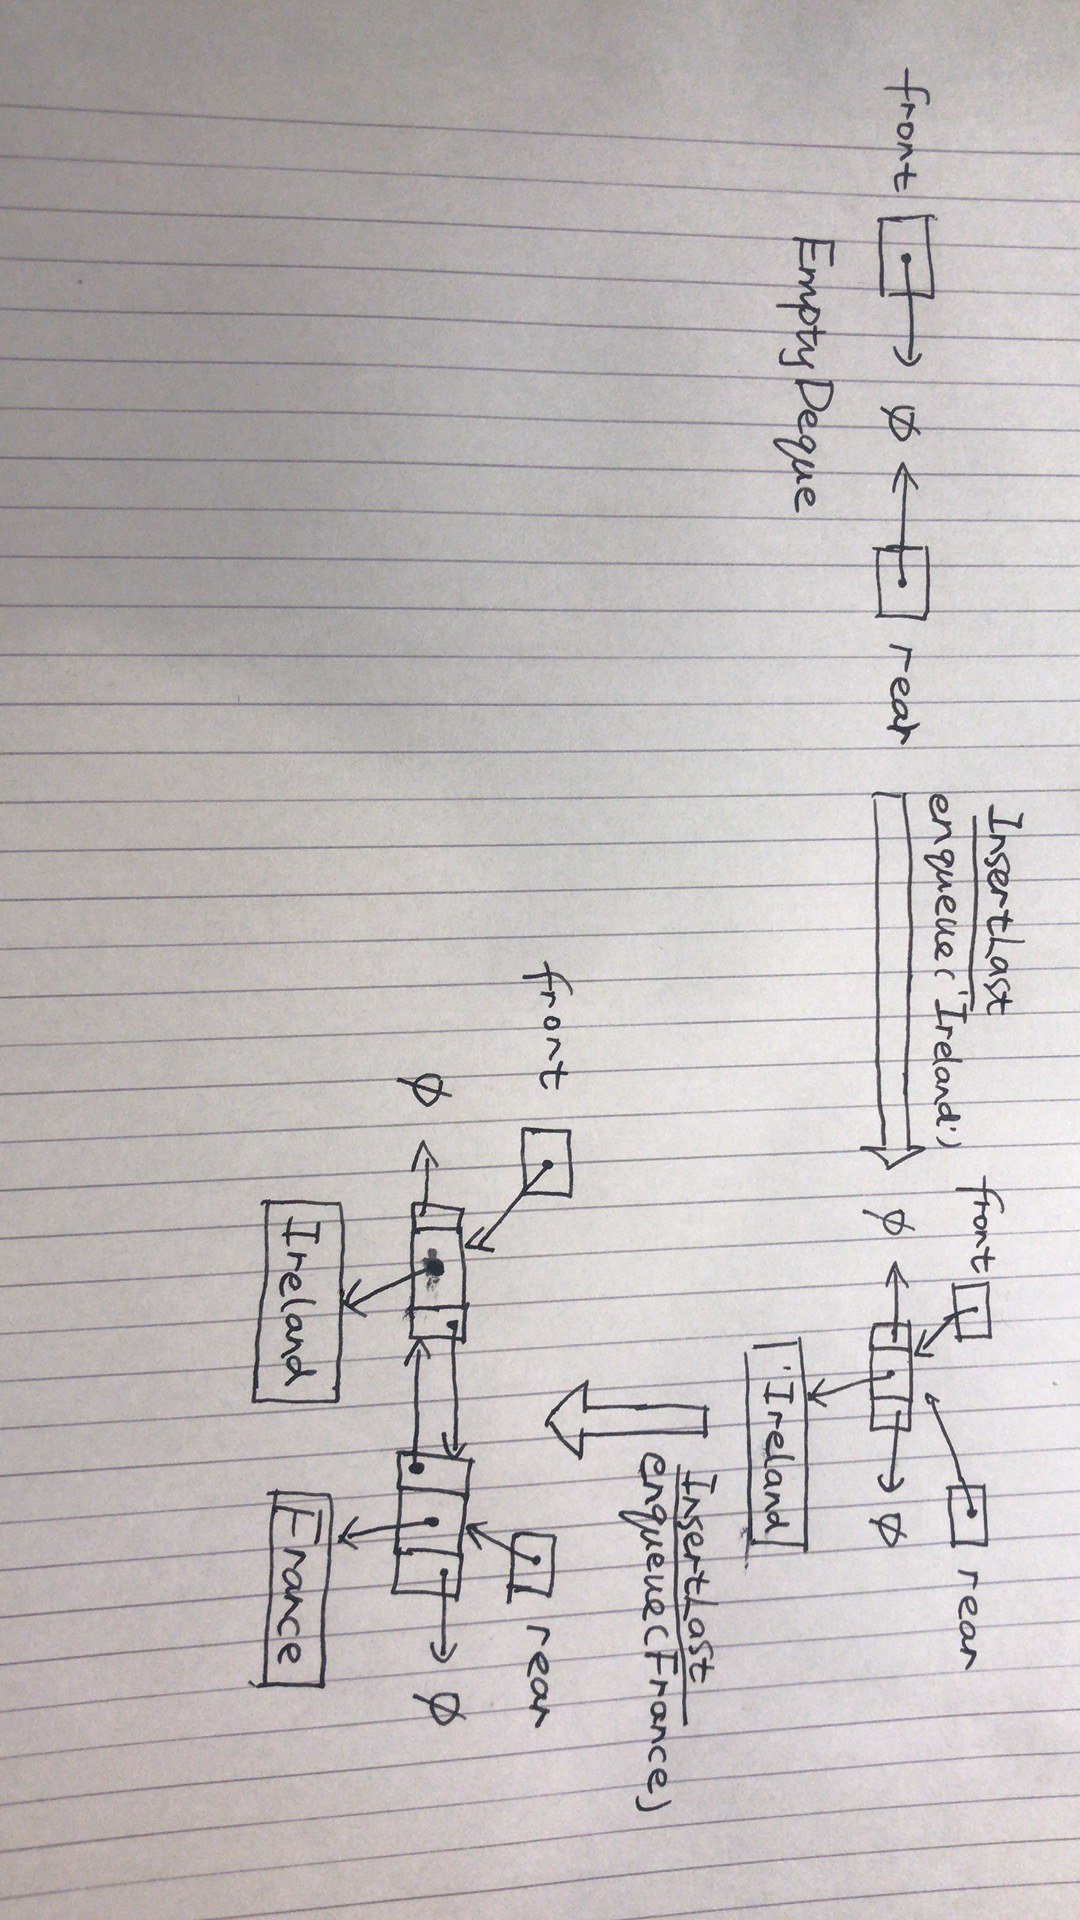 front ∅ rear
Empty Deque
InsertLast
enqueue('Ireland')
front rear
∅ ∅
'Ireland
InsertLast
enqueue(France)
front rear
∅ ∅
Ireland France